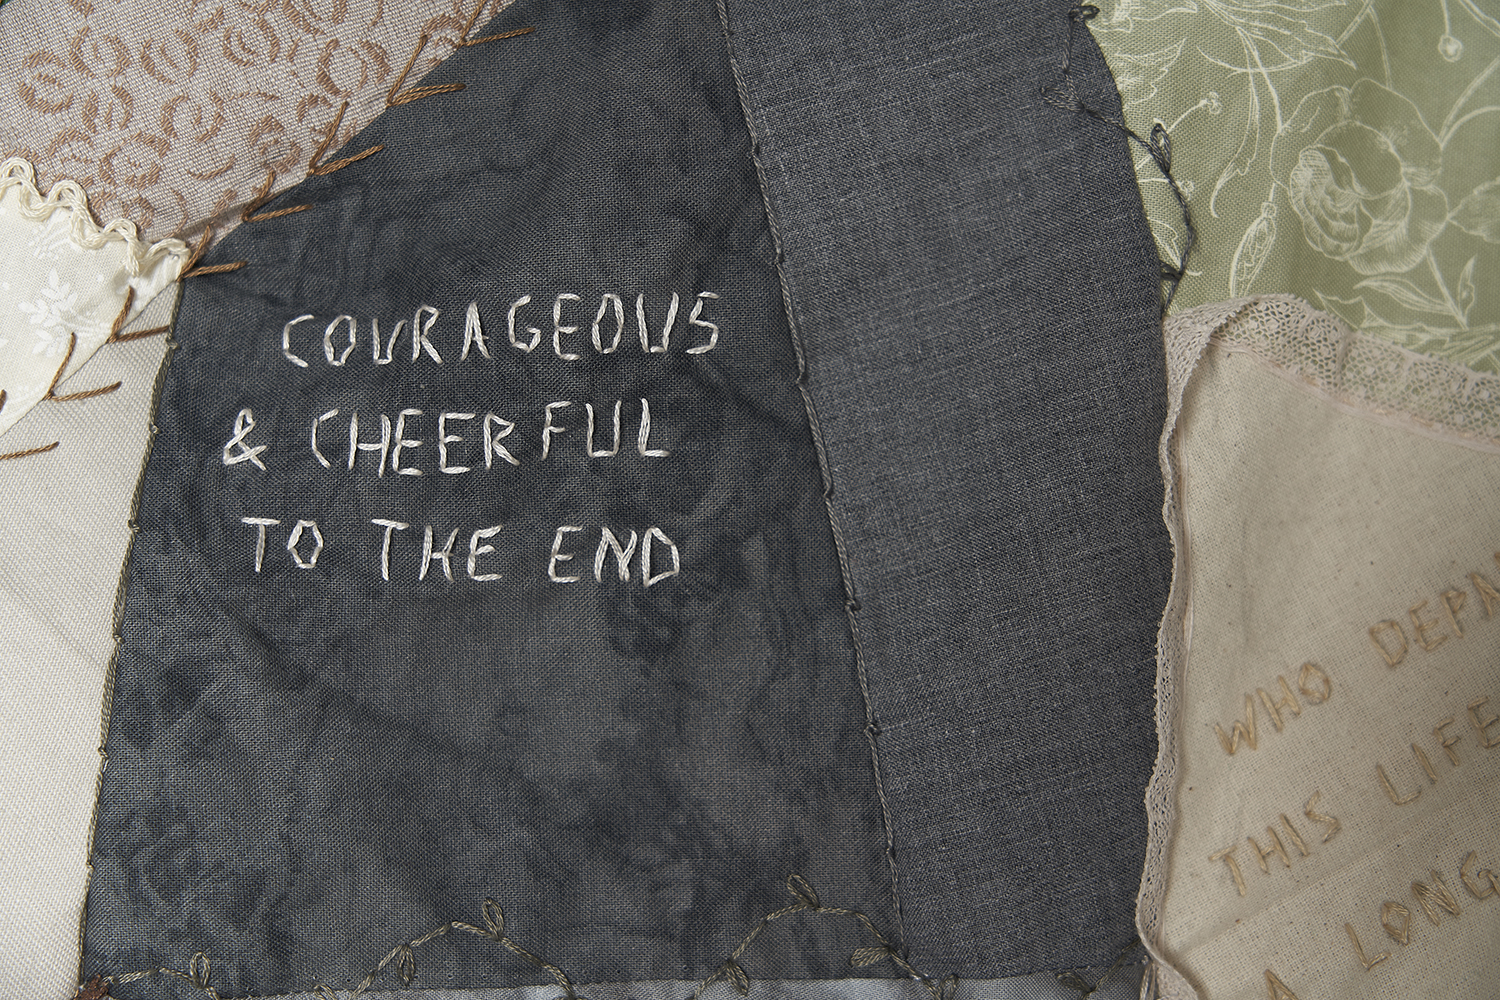 COURAGEOUS
& CHEERFUL
TO THE END
WHO
THIS LIFE
A LONG